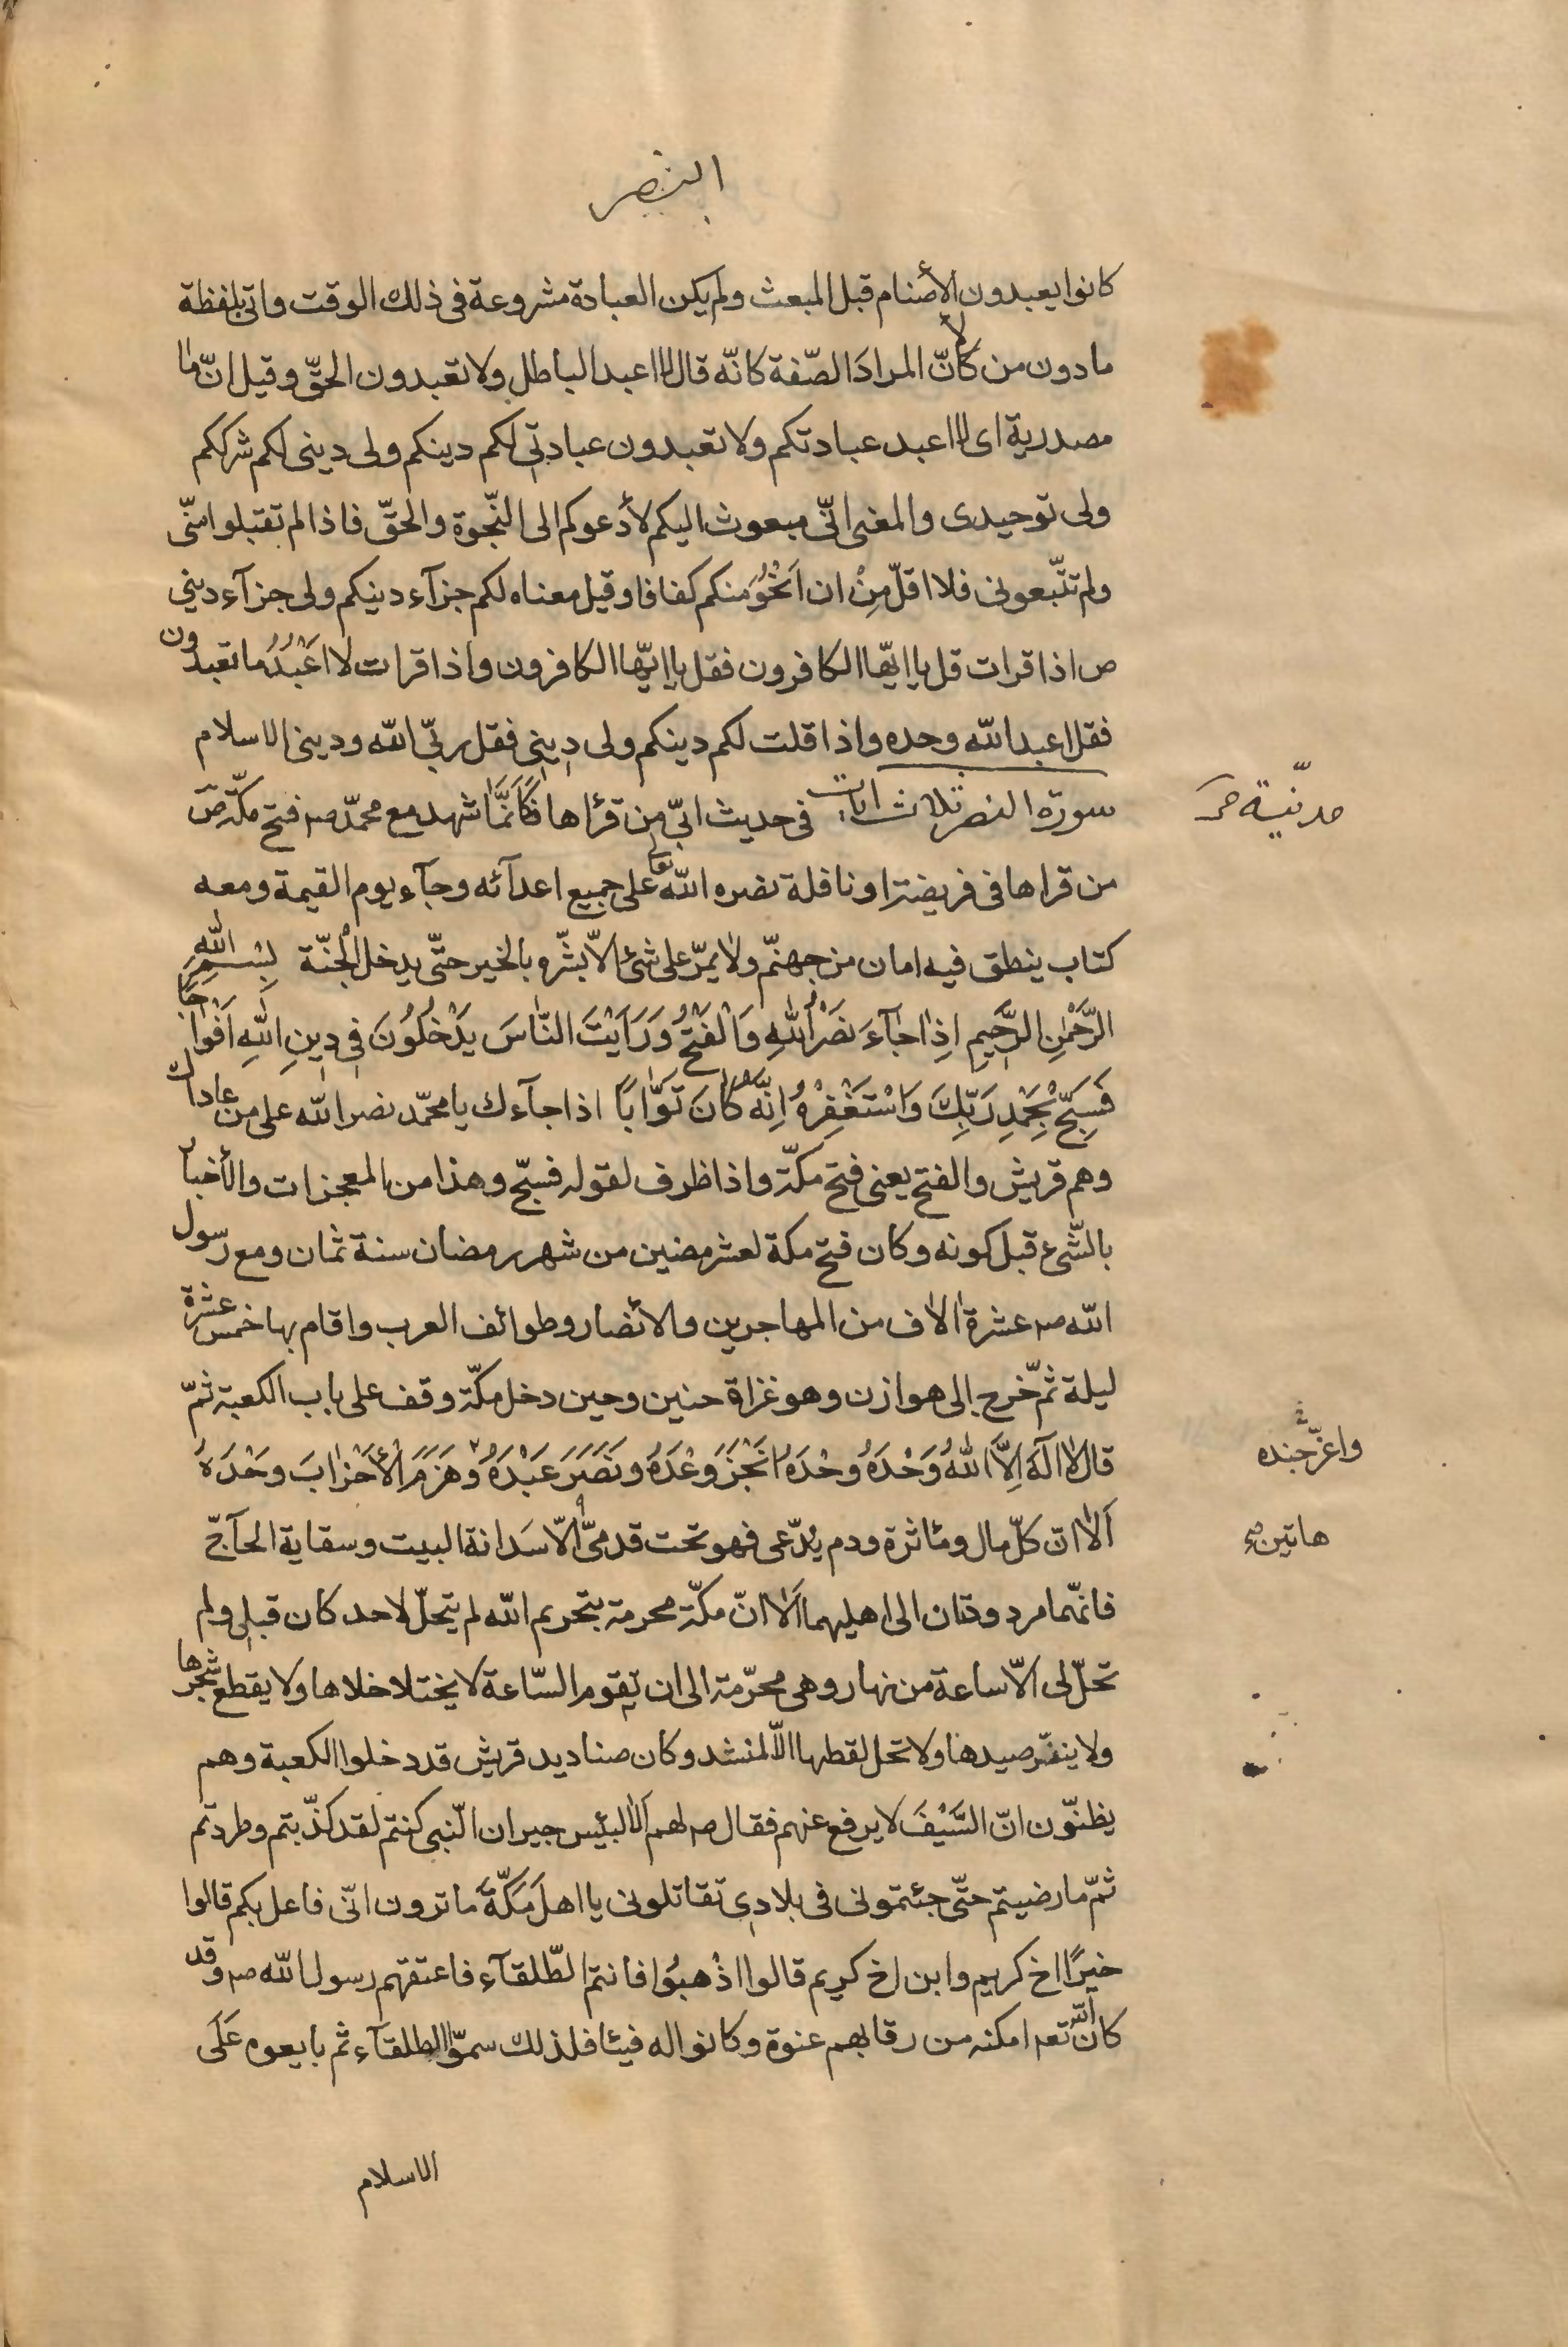 النصر
كانوا يعبدون الأصنام قبل المبعث ولم يكن العبادة مشروعة فى ذلك الوقت واتى بلفظة
ما دون من لأنّ المرادَ الصّفة كانّه قال لا اعبد الباطل ولا تعبدون الحقّ وقيل انّ ما
مصدرية اى لا اعبد عبادتكم ولا تعبدون عبادتى لكم دينكم ولى دينى لكم شرككم
ولى توحيدى والمعنى انّى مبعوث اليكم لأدعوكم الى النّجوة والحقّ فاذا لم تقبلوا منّى
ولم تتّبعونى فلا اقلّ مِنْ ان اَنْجُوَ منكم كفافا وقيل معناه لكم جزآء دينكم ولى جزآء دينى
ص اذا قرات قل يا ايّها الكافرون فقل يا ايّها الكافرون واذا قرات لا اَعْبُدُ ما تعبدون
فقل اعبد اللّه وحده واذا قلت لكم دينكم ولى دينى فقل ربّى اللّه ودينى الاسلام
سورة النصر ثلاث ايات فى حديث ابىّ من قرأها فكَاَنَّمَا شهد مع محمّد صم فتح مكّة ص
مدنيّة
من قراها فى فريضة او نافلة نصره اللّه تع على جميع اعدآئه وجآء يوم القيمة ومعه
كتاب ينطق فيه امان من جهنّم ولا يمرّ على شئ الّا بشّره بالخير حتّى يدخل الْجنّة بِسْمِ اللّهِ
الرَّحْمٰنِ الرَّحِيمِ اِذٰا جٰآءَ نَصْرُ اللّٰهِ وَالْفَتْحُ وَرَاَيْتَ النّٰاسَ يَدْخُلُونَ فِى دِينِ اللّٰهِ اَفْوٰاجًا
فَسَبِّحْ بِحَمْدِ رَبِّكَ وَاسْتَغْفِرْهُ اِنَّهُ كٰانَ تَوّٰابًا اذا جآءك يا محمّد نصر اللّه على من عاداك
وهم قريش والفتح يعنى فتح مكّة واذا ظرف لقوله فسبّح وهذا من المعجزات والأخبار
بالشّىء قبل كونه وكان فتح مكة لعشر مضين من شهر رمضان سنة ثمان ومع رسول
اللّه صم عشرة الاف من المهاجرين والأنصار وطوائف العرب واقام بها خمس عشرة
ليلة ثمّ خرج الى هوازن وهو غزاة حنين وحين دخل مكّة وقف على باب الكعبة ثمّ
قال لا اله اِلَّا اللّٰهُ وَحْدَهُ وحْدَهُ اَنْجَزَ وَعْدَهُ ونَصَرَ عَبْدَهُ وهَزَمَ الْأَحْزٰابَ وحْدَهُ
واعزّ جنده
اَلٰا انّ كلّ مال ومٔاثرة ودم يُدّعى فهو تحت قدمىّ الّا سَدانة البيت وسقاية الحآجّ
هاتين
فانّهما مردودتان الى اهليهما اَلٰا انّ مكّة محرمة بتحريم اللّه لم يتحلّ لاحد كان قبلى ولم
تحلّ لى الّا ساعة من نهار وهى محرّمة الى ان تقوم السّاعة لا يختلا خلاها ولا يقطع شجرها
ولا ينفّر صيدها ولا تحل لقطها الّا لمنشد وكان صناديد قريش قد دخلوا الكعبة وهم
يظنّون انّ السَّيْفَ لا يرفع عنهم فقال صم لهم اَلٰا لبئيس جيران النّبى كنتم لقد كذّبتم وطردتم
ثمّ ما رضيتم حتّى جئتمونى فى بلادى تقاتلونى يا اهلَ مَكَّةَ ما ترون انّى فاعل بكم قالوا
خيرًا اخ كريم وابن اخ كريم قالوا اذْهبُوا فانتم الطّلقآء فاعتقهم رسول اللّه صم وقد
كان اللّه تعم امكنه من رقابهم عنوة وكانوا له فيئا فلذلك سمّوا الطلقآء ثم بايعوه عَلَى
الاسلام